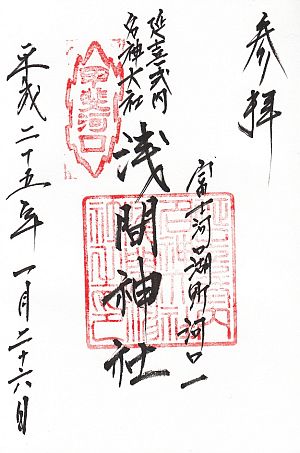 参拝
富士河口湖町河口一
延喜式内
名神大社
浅間神社
甲斐河口
平成二十五年一月二十六日